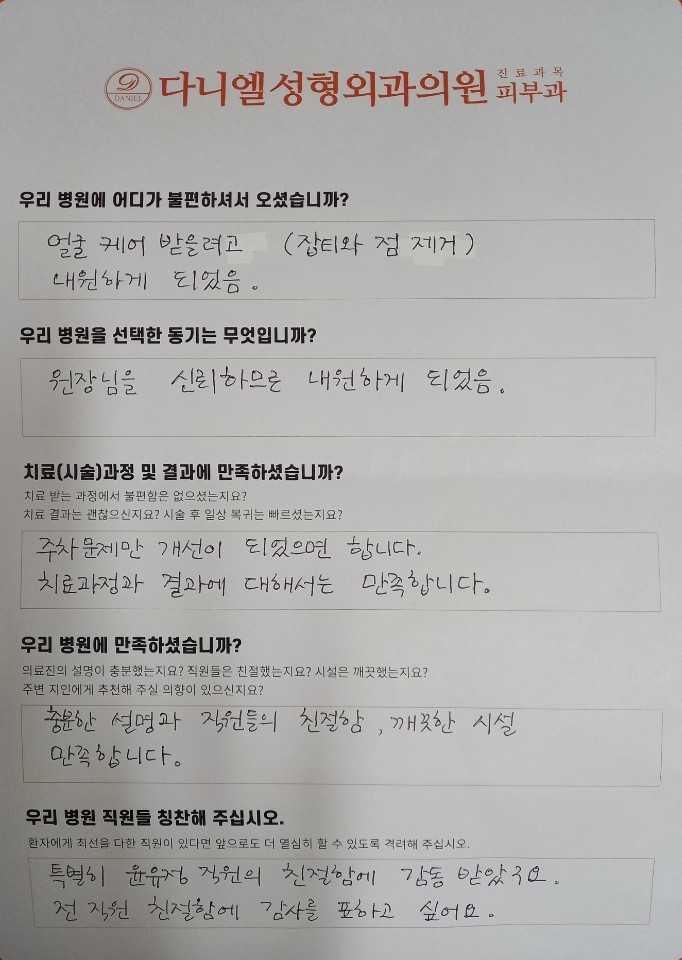 DANIEL
다니엘성형외과의원 진료과목 피부과
우리 병원에 어디가 불편하셔서 오셨습니까?
얼굴 케어 받을려고 (잡티와 점 제거)
내원하게 되었음.
우리 병원을 선택한 동기는 무엇입니까?
원장님을 신뢰하므로 내원하게 되었음.
치료(시술)과정 및 결과에 만족하셨습니까?
치료 받는 과정에서 불편함은 없으셨는지요?
치료 결과는 괜찮으신지요? 시술 후 일상 복귀는 빠르셨는지요?
주차문제만 개선이 되었으면 합니다.
치료과정과 결과에 대해서는 만족합니다.
우리 병원에 만족하셨습니까?
의료진의 설명이 충분했는지요? 직원들은 친절했는지요? 시설은 깨끗했는지요?
주변 지인에게 추천해 주실 의향이 있으신지요?
충분한 설명과 직원들의 친절함, 깨끗한 시설
만족합니다.
우리 병원 직원들 칭찬해 주십시오.
환자에게 최선을 다한 직원이 있다면 앞으로도 더 열심히 할 수 있도록 격려해 주십시오.
특별히 윤유정 직원의 친절함에 감동 받았구요.
전 직원 친절함에 감사를 표하고 싶어요.